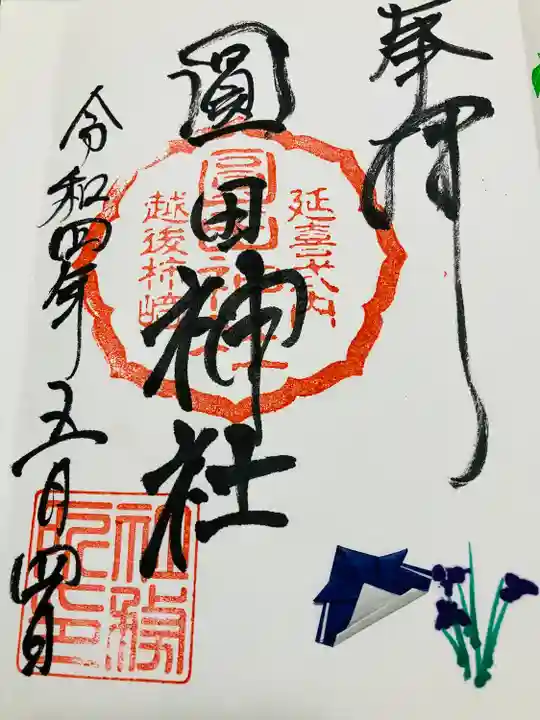 奉拝
圓田神社
延喜式内
越後柿崎
令和四年五月四日
社務所印